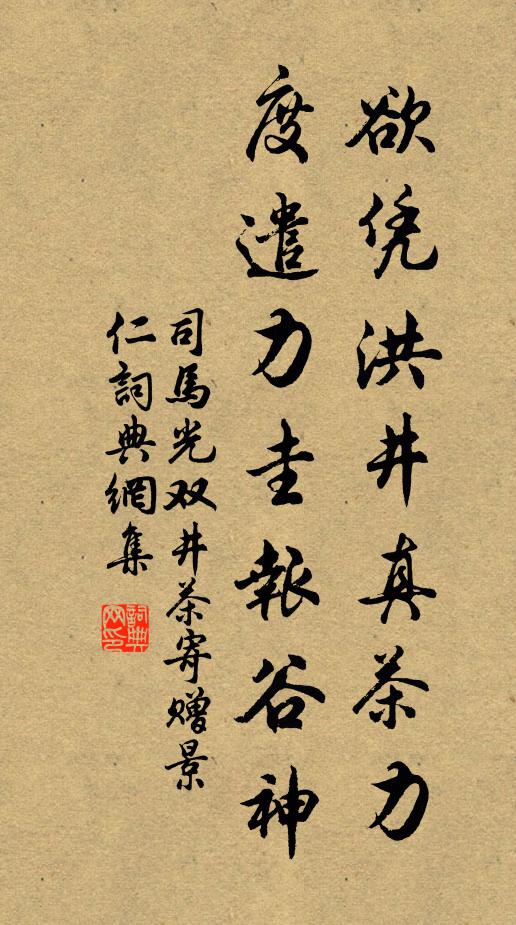 欲凭洪井真茶力
度遣力圭報谷神
司馬光双井茶寄赠景
仁詞典網集
詞典网印